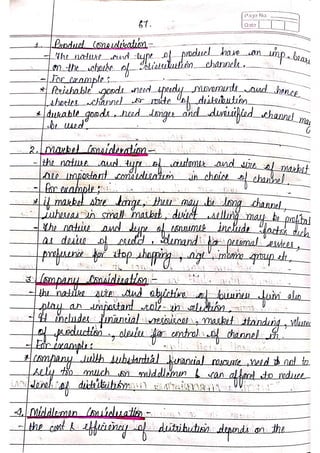 Page No.
Date
67.
1. Product Consideration -
- The nature and type of product have an imp. bearing
on the choice of distribution channels.
- For example :
* Perishable goods need speedy movements and hence
shorter channel or route of distribution.
* durable goods need longer and diversified channel may
be used.
2. Market Consideration -
- the nature and type of customer and size of market
are important consideration in choice of channel.
- For example :
* if market size large, there may be long channel,
whereas in small market, direct selling may be profitab
- the nature and type of consumer include factors such
as desire of credit, demand for personal services,
preference for stop shopping, age, income group etc.
3. Company Consideration -
- the nature size and objective of business firm also
play an important role in selection.
- It includes financial resources, market standing, volume
of production, desire for control of channel
- For example :
* company with substantial financial resource, need to not to
rely too much on middlemen & can afford to reduce
level of distribution
4. Middlemen Consideration -
- the cost & efficiency of distribution depends on the